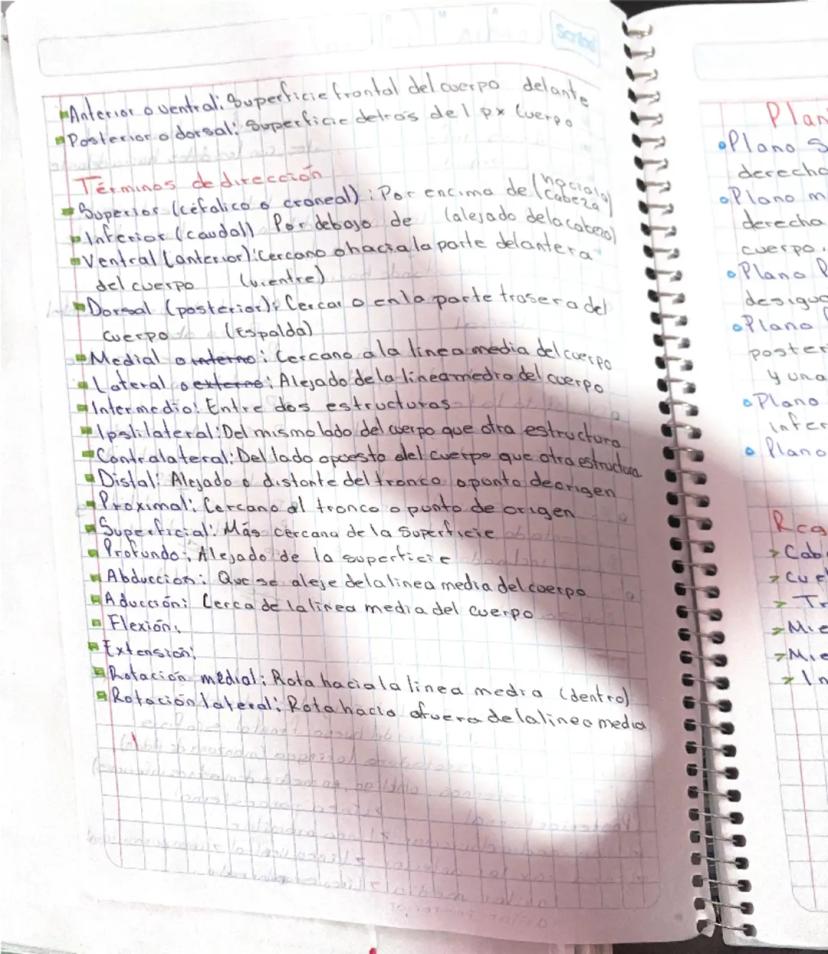 Scribe
Anterior o ventral: Superficie frontal del cuerpo delante
Posterior o dorsal: Superficie detrás del px Cuerpo
Términos de dirección
Superior (céfalico o craneal): Por encima de (hacia la cabeza)
Inferior (caudal) Por debajo de (alejado de la cabeza)
Ventral (anterior): Cercano o hacia la parte delantera
del cuerpo (vientre)
Dorsal (posterior): Cercar o en la parte trasera del
cuerpo (Espalda)
Medial o interno: Cercano a la linea media del cuerpo
Lateral o externo: Alejado de la linea media del cuerpo
Intermedio: Entre dos estructuras
Ipsilateral: Del mismo lado del cuerpo que otra estructura
Contralateral: Del lado opuesto del cuerpo que otra estructura
Distal: Alejado o distante del tronco o punto de origen
Próximal: Cercano al tronco o punto de origen
Superficial: Más cercana de la superficie
Profundo: Alejado de la superficie
Abducción: Que se aleje de la linea media del cuerpo
Aducción: Cerca de la linea media del cuerpo
Flexión:
Extensión:
Rotación medial: Rota hacia la linea media (dentro)
Rotación lateral: Rota hacia afuera de la linea media
Plan
Plano S
derecha
Plano m
derecha
cuerpo.
Plano P
desigua
Plano
poster
y una
Plano
infer
Plano
Reg
Cab
Cuel
Tr
Mie
Mie
In